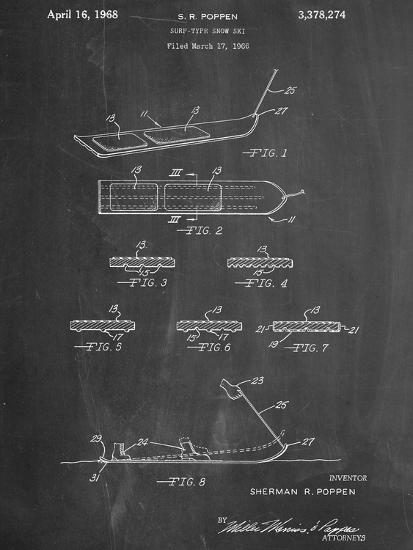 April 16, 1968
S. R. POPPEN
3,378,274
SURF-TYPE SNOW SKI
Filed March 17, 1966
13
11
13
25
27
FIG. 1
13
III
13
III
11
FIG. 2
13
15
FIG. 3
13
15
FIG. 4
13
17
FIG. 5
13
15
17
FIG. 6
13
21
21
19
17
FIG. 7
23
25
29
24
27
31
FIG. 8
INVENTOR
SHERMAN R. POPPEN
BY
ATTORNEYS